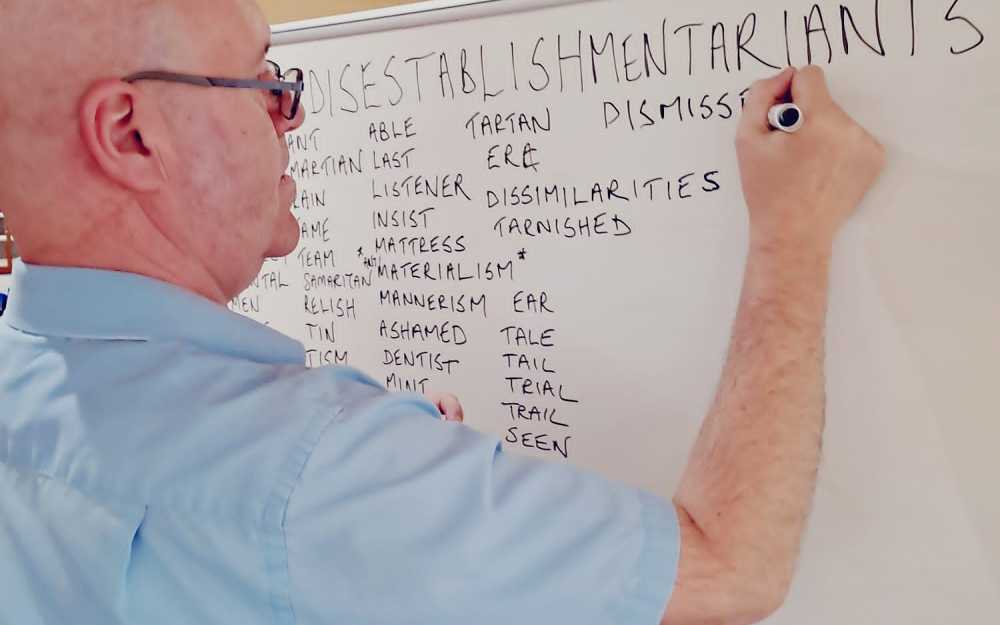 DISESTABLISHMENTARIANIS
ANT ABLE TARTAN DISMISSE
MARTIAN LAST ERA
AIN LISTENER DISSIMILARITIES
AME INSIST TARNISHED
TEAM MATTRESS
NTAL SAMARITAN *ANTI MATERIALISM*
MEN RELISH MANNERISM EAR
TIN ASHAMED TALE
TISM DENTIST TAIL
MINT TRIAL
TRAIL
SEEN